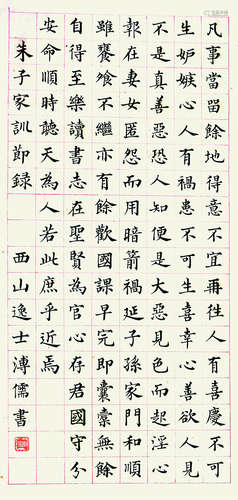 凡事當留餘地得意不宜再往人有喜慶不可
生妒嫉心人有禍患不可生喜幸心善欲人見
不是真善惡恐人知便是大惡見色而起淫心
報在妻女匿怨而用暗箭禍延子孫家門和順
雖饔飧不繼亦有餘歡國課早完即囊橐無餘
自得至樂讀書志在聖賢為官心存君國守分
安命順時聽天為人若此庶乎近焉
朱子家訓節錄 西山逸士溥儒書